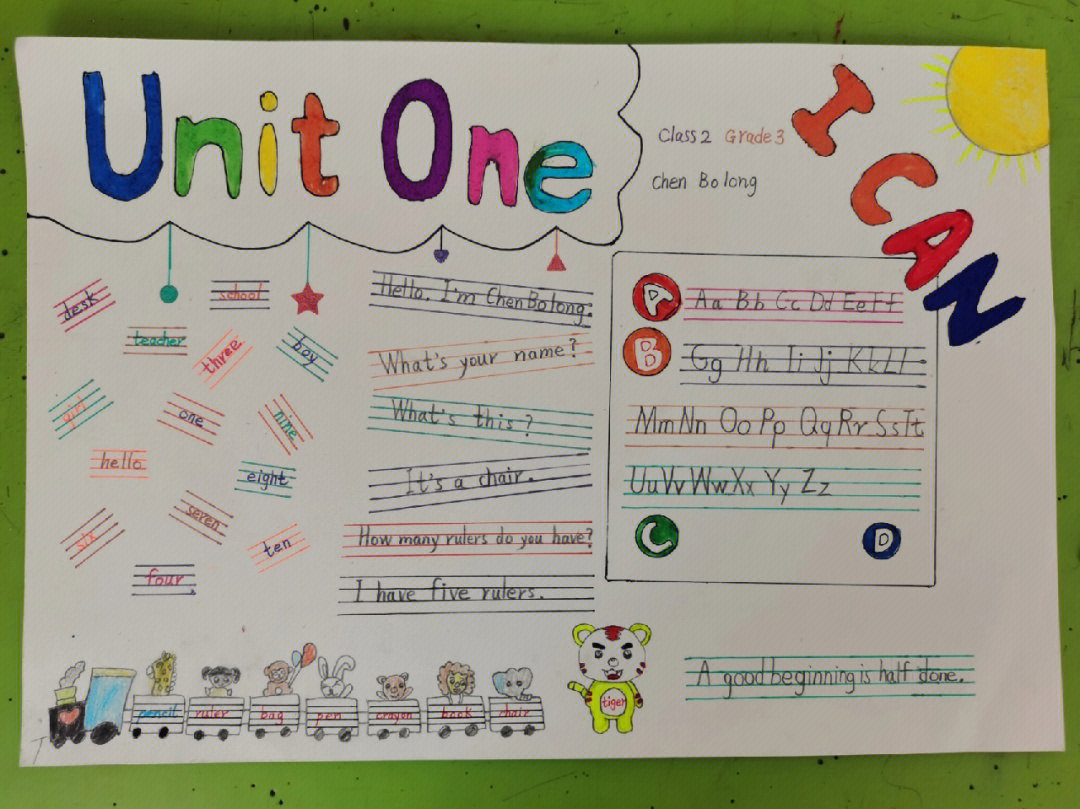 Unit One
Class 2 Grade 3
Chen Bolong
I CAN
desk
school
teacher
three
boy
girl
one
nine
hello
eight
seven
six
ten
four
Hello. I'm Chen Bolong.
What's your name?
What's this?
It's a chair.
How many rulers do you have?
I have five rulers.
A Aa Bb Cc Dd Ee Ff
B Gg Hh Ii Jj Kk Ll
Mm Nn Oo Pp Qq Rr Ss Tt
Uu Vv Ww Xx Yy Zz
C D
pencil ruler bag pen crayon book chair
tiger
A good beginning is half done.